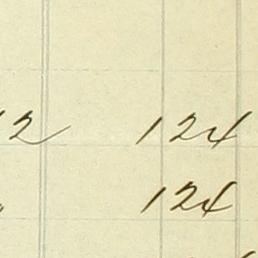 12 124
" 124